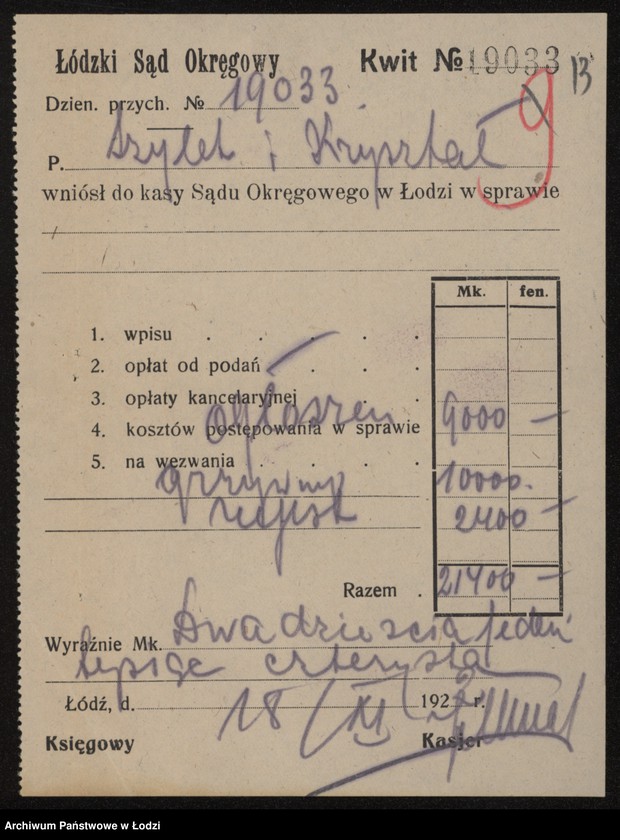 Łódzki Sąd Okręgowy Kwit № 19033
13
Dzien. przych. № 19033
9
P. Szylet i Kryształ
wniósł do kasy Sądu Okręgowego w Łodzi w sprawie
Mk. fen.
1. wpisu . . . .
2. opłat od podań . . .
3. opłaty kancelaryjnej . .
ogłoszen
4. kosztów postępowania w sprawie 9000 —
5. na wezwania . . . .
grzywny 10000.
rejest 2400 —
Razem . 21400 —
Wyraźnie Mk. Dwadzieścia jeden
tysięc czterysta
Łódź, d. 18/XI 1922 r.
Księgowy Kasjer
Archiwum Państwowe w Łodzi